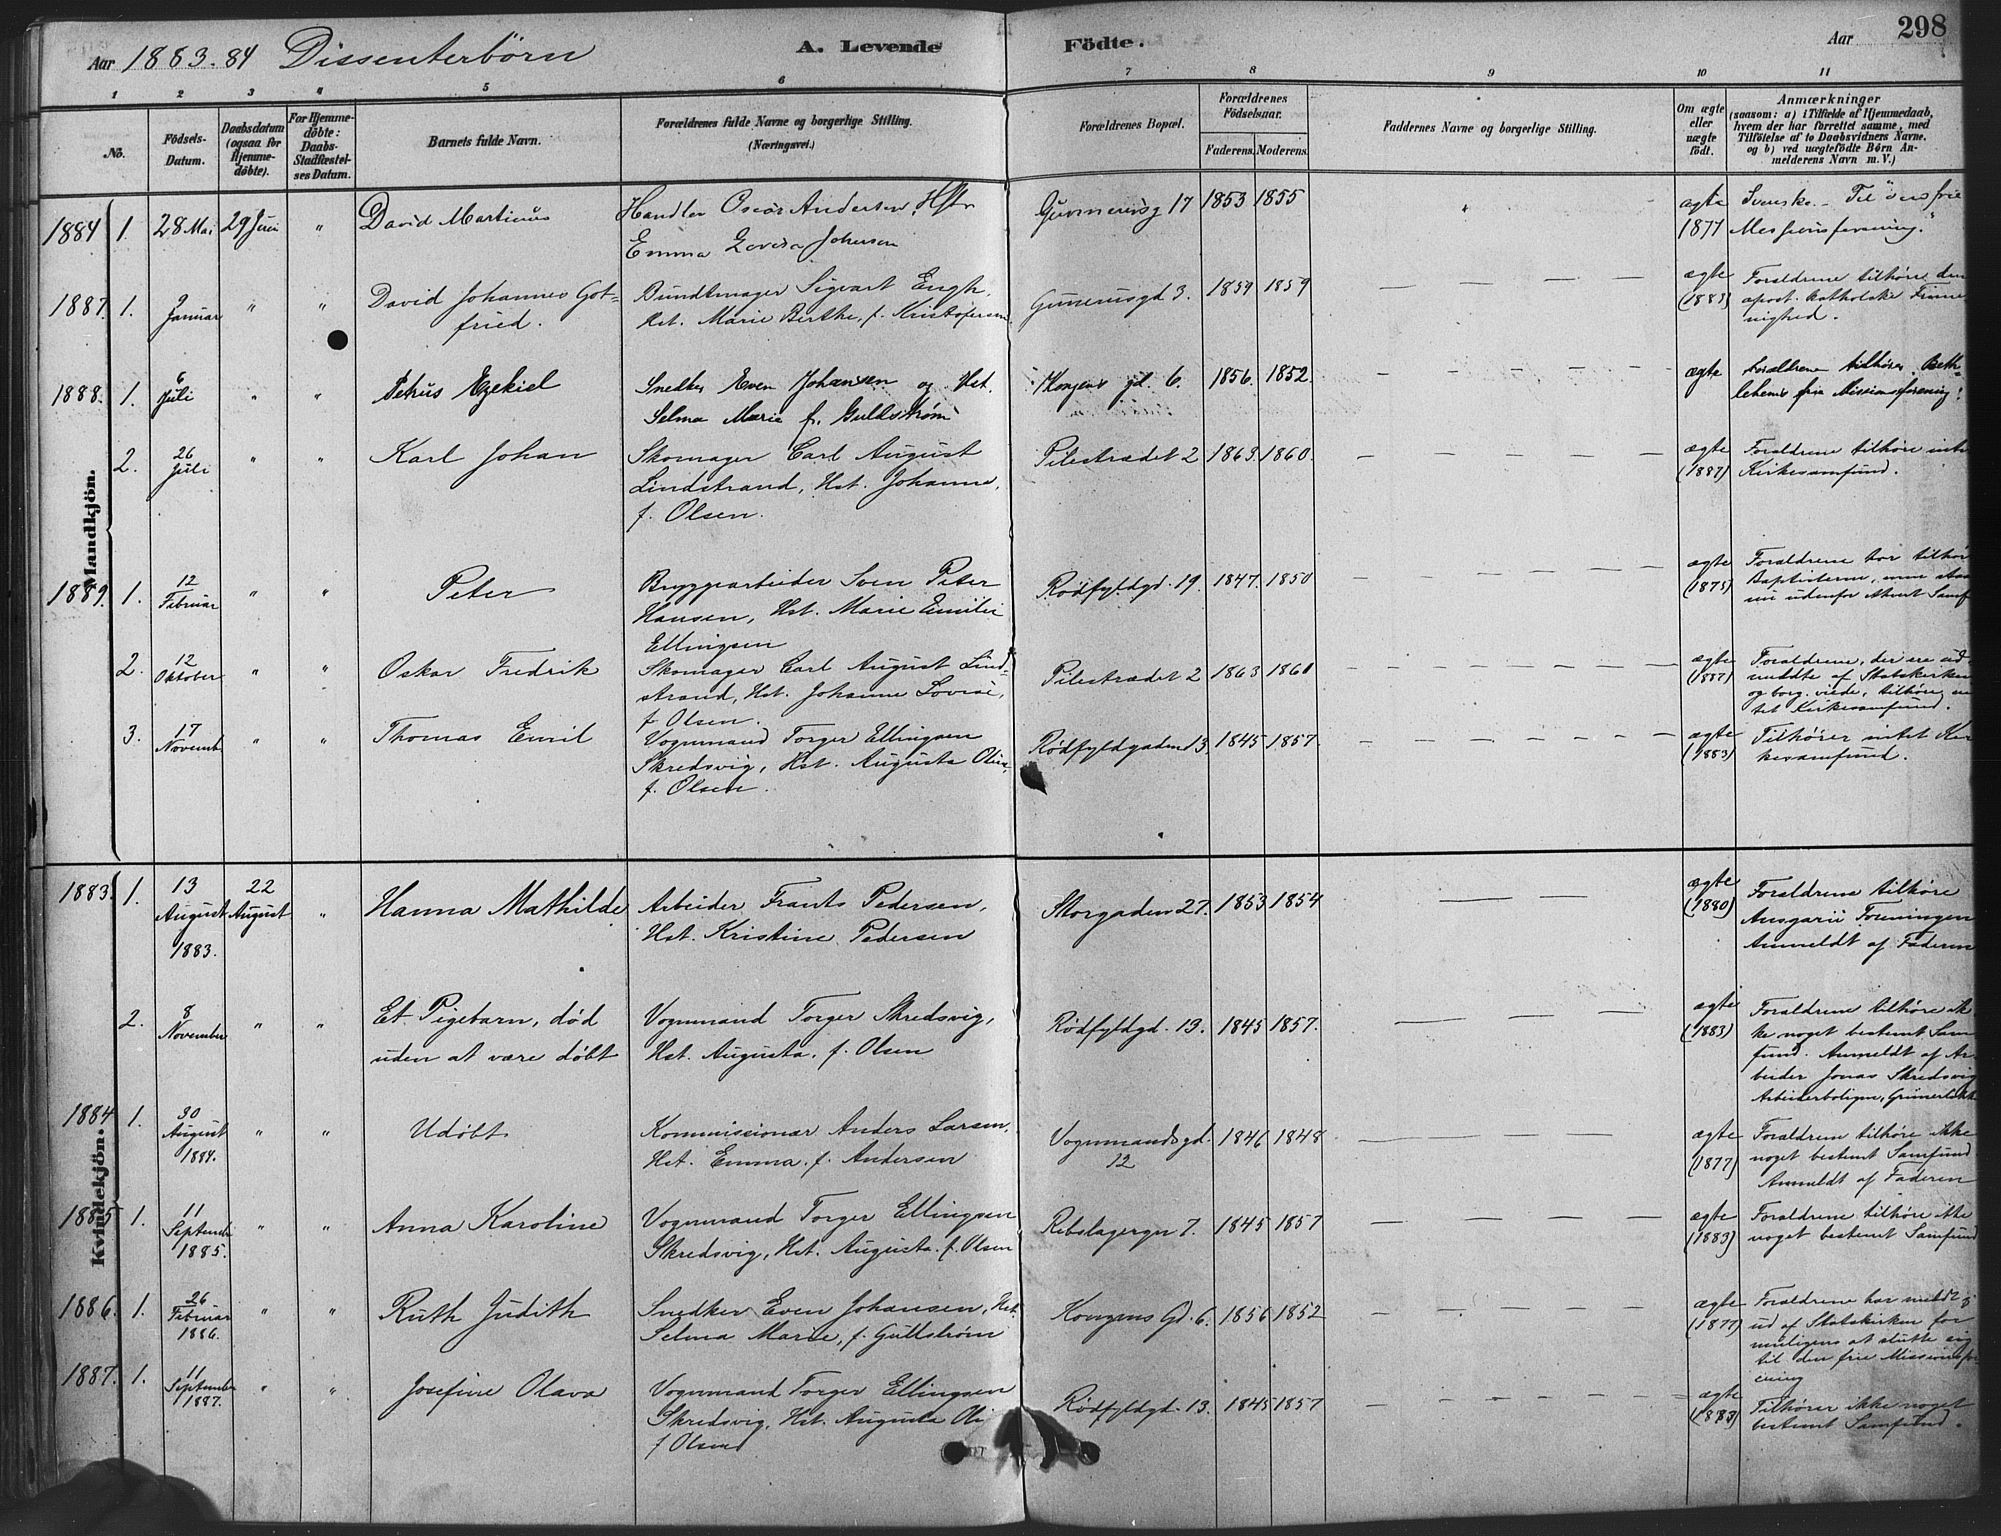 Aar 1883-84 Dissenterbörn A. Levende Fødte. Aar 298
1 2 3 4 5 6 7 8 9 10 11
No.
Födsels-
Datum.
Daabsdatum
(ogsaa for
Hjemme-
døbte).
For Hjemme-
døbte:
Daabs-
Stadfæstel-
ses Datum.
Barnets fulde Navn.
Forældrenes fulde Navne og borgerlige Stilling.
(Næringsvei.)
Forældrenes Bopæl.
Forældrenes
Födselsaar.
Faderens. Moderens.
Faddernes Navne og borgerlige Stilling.
Om ægte
eller
uægte
født.
Anmærkninger
(saasom: a) i Tilfælde af Hjemmedaab,
hvem der har forrettet samme, med
Tilføielse af to Daabsvidners Navne.
og b) ved uægtefødte Børn An-
melderens Navn m. V.)
Mandkjön.
1884 1. 28 Mai 29 Juni " David Martinus
Handler Oscar Andersen, Hstr
Emma Johnsen
17 1853 1855
ægte
1877
Svenske
Missionsforening.
1887. 1. Januar " " David Johannes Got-
fried.
Bundtmager Sigvart Engh,
Hst. Marie Berthe, f. Kristofersen
Gunerusgd 3. 1859 1859
ægte
(1883)
Forældrene tilhøre den
apost. katholske
nighed.
1888. 1. 6 Juli " " Petrus Ezekiel
Snedker Even Johansen og Hst.
Selma Marie f. Guldstrøm
Kongens gd. 6. 1856. 1852.
ægte
Forældrene tilhører Beth-
lehems frie Missionsforening.
2. 26 Juli " " Karl Johan
Skomager Carl August
Lindstrand, Hst. Johanne,
f. Olsen.
Pilestrædet 2 1863. 1860.
ægte
(1887)
Forældrene tilhøre intet
Kirkesamfund.
1889. 1. 12 Februar " " Peter
Bryggearbeider Sven Peter
Hansen, Hst. Marie Emilie
Ellingsen
Rødfyldgd. 19. 1847. 1850
ægte
(1875)
Forældrene har tilhørt
Baptisterne, men staa
nu udenfor ethvert Samf
2. 12 Oktober " " Oskar Fredrik
Skomager Carl August Lind-
strand, Hst. Johanne Lovise,
f Olsen.
Pilestrædet 2 1863 1860
ægte
(1887)
Forældrene, der ere ud-
meldte af Statskirken
og borg. viede, tilhøre in-
tet Kirkesamfund.
3. 17 Novemb " " Thomas Emil
Vognmand Torger Ellingsen
Skredsvig, Hst. Augusta Olive,
f. Olsen.
Rødfyldgaden 13. 1845 1857.
ægte
(1883)
Tilhører intet Kir
kesamfund.
Kvindekjön.
1883. 1. 13 August 1883. 22 August " Hanna Mathilde
Arbeider Frants Pedersen,
Hst. Kristine Pedersen
Storgaden 27. 1853 1854
ægte
(1880)
Forældrene tilhøre
Ansgarii Foreningen
Anmeldt af Faderen
2. 8 November " " Et Pigebarn, død
uden at være døbt
Vognmand Torger Skredsvig,
Hst. Augusta, f. Olsen
Rødfyldgd. 13. 1845 1857.
ægte
(1883)
Forældrene tilhøre ik-
ke noget bestemt Sam-
fund. Anmeldt af Ar-
beider Jonas Skredsvig
Arbeiderboligen, Grünerløkk
1884 1. 30 August 1884. " " Udøbt
Kommissionær Anders Larsen,
Hst. Emma, f. Andersen
Vognmandsgd. 12 1846 1848
ægte
(1877)
Forældrene tilhøre ikke
noget bestemt Samfund.
Anmeldt af Faderen
1885 1. 11 Septemb 1885. " " Anna Karoline
Vognmand Torger Ellingsen
Skredsvig, Hst. Augusta f. Olsen
Rebslagergn 7. 1845 1857
ægte
(1883)
Forældrene tilhøre ikke
noget bestemt Samfund
1886. 1. 26 Februar 1886. " " Ruth Judith
Snedker Even Johansen, Hst.
Selma Marie, f. Gullstrøm
Kongens Gd. 6. 1856 1852
ægte
(1877)
Forældrene har meldt sig
ud af Statskirken for
muligens at slutte sig
til den frie Missionsfor
ening
1887. 1. 11 September 1887. " " Josefine Olava
Vognmand Torger Ellingsen
Skredsvig, Hst. Augusta Oli
f Olsen
Rødfyldgd. 13. 1845 1857
ægte
(1883)
Tilhører ikke noget
bestemt Samfund.